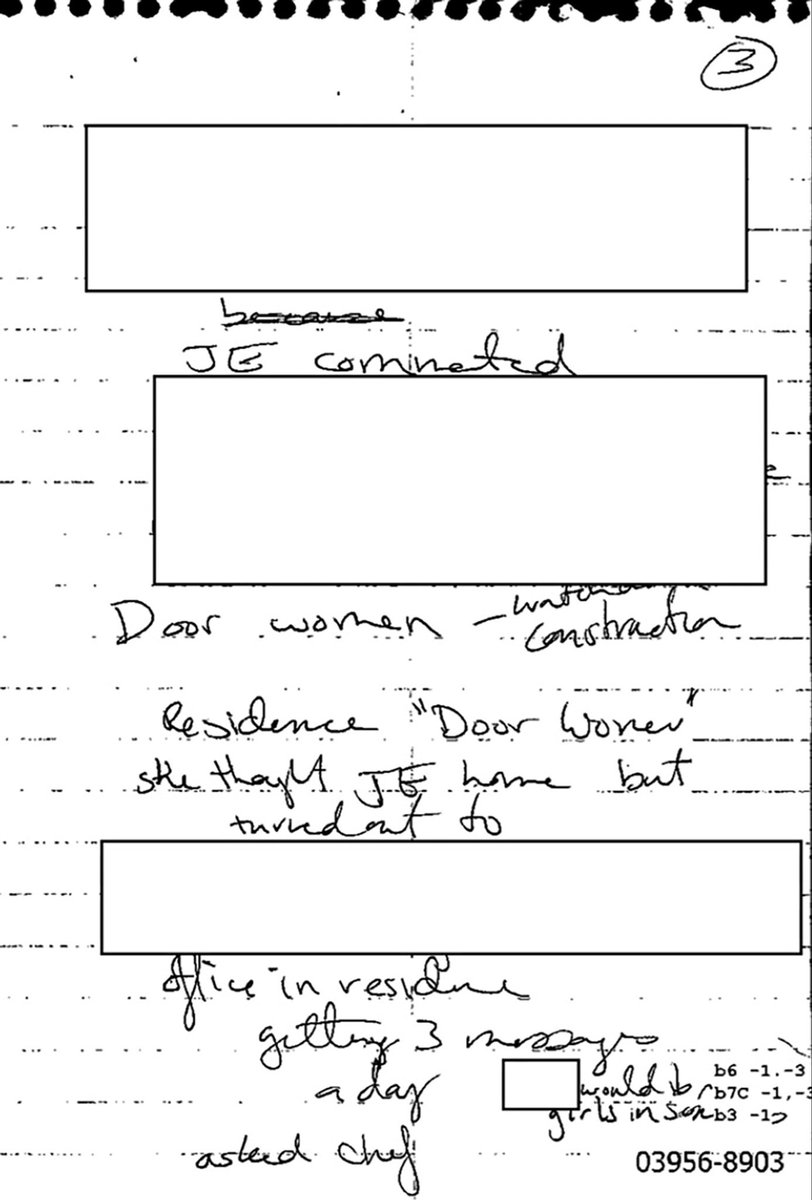 3
because
JE commeted
Door women - watching
construction
Residence "Door Women"
she thought JE home but
turned out to
office in residence
getting 3 messages
a day
would b
girls in
b6 -1.-3
b7C -1,-3
b3 -1
asked chef
03956-8903